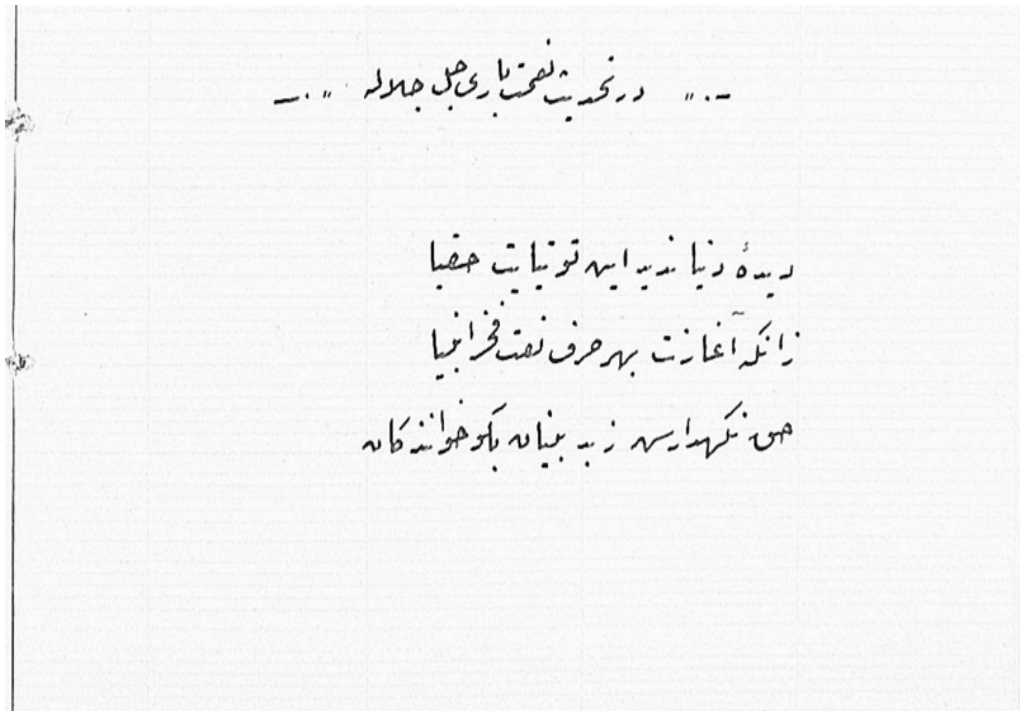 در تحدیث نعمت باری جل جلاله
دیدهٔ دنیا ندید این توتیایت حفیا
زانکه آغازت بهر حرف نعت فخر انبیا
حق نگهدارس ز بد بینان بگو خوانندکان